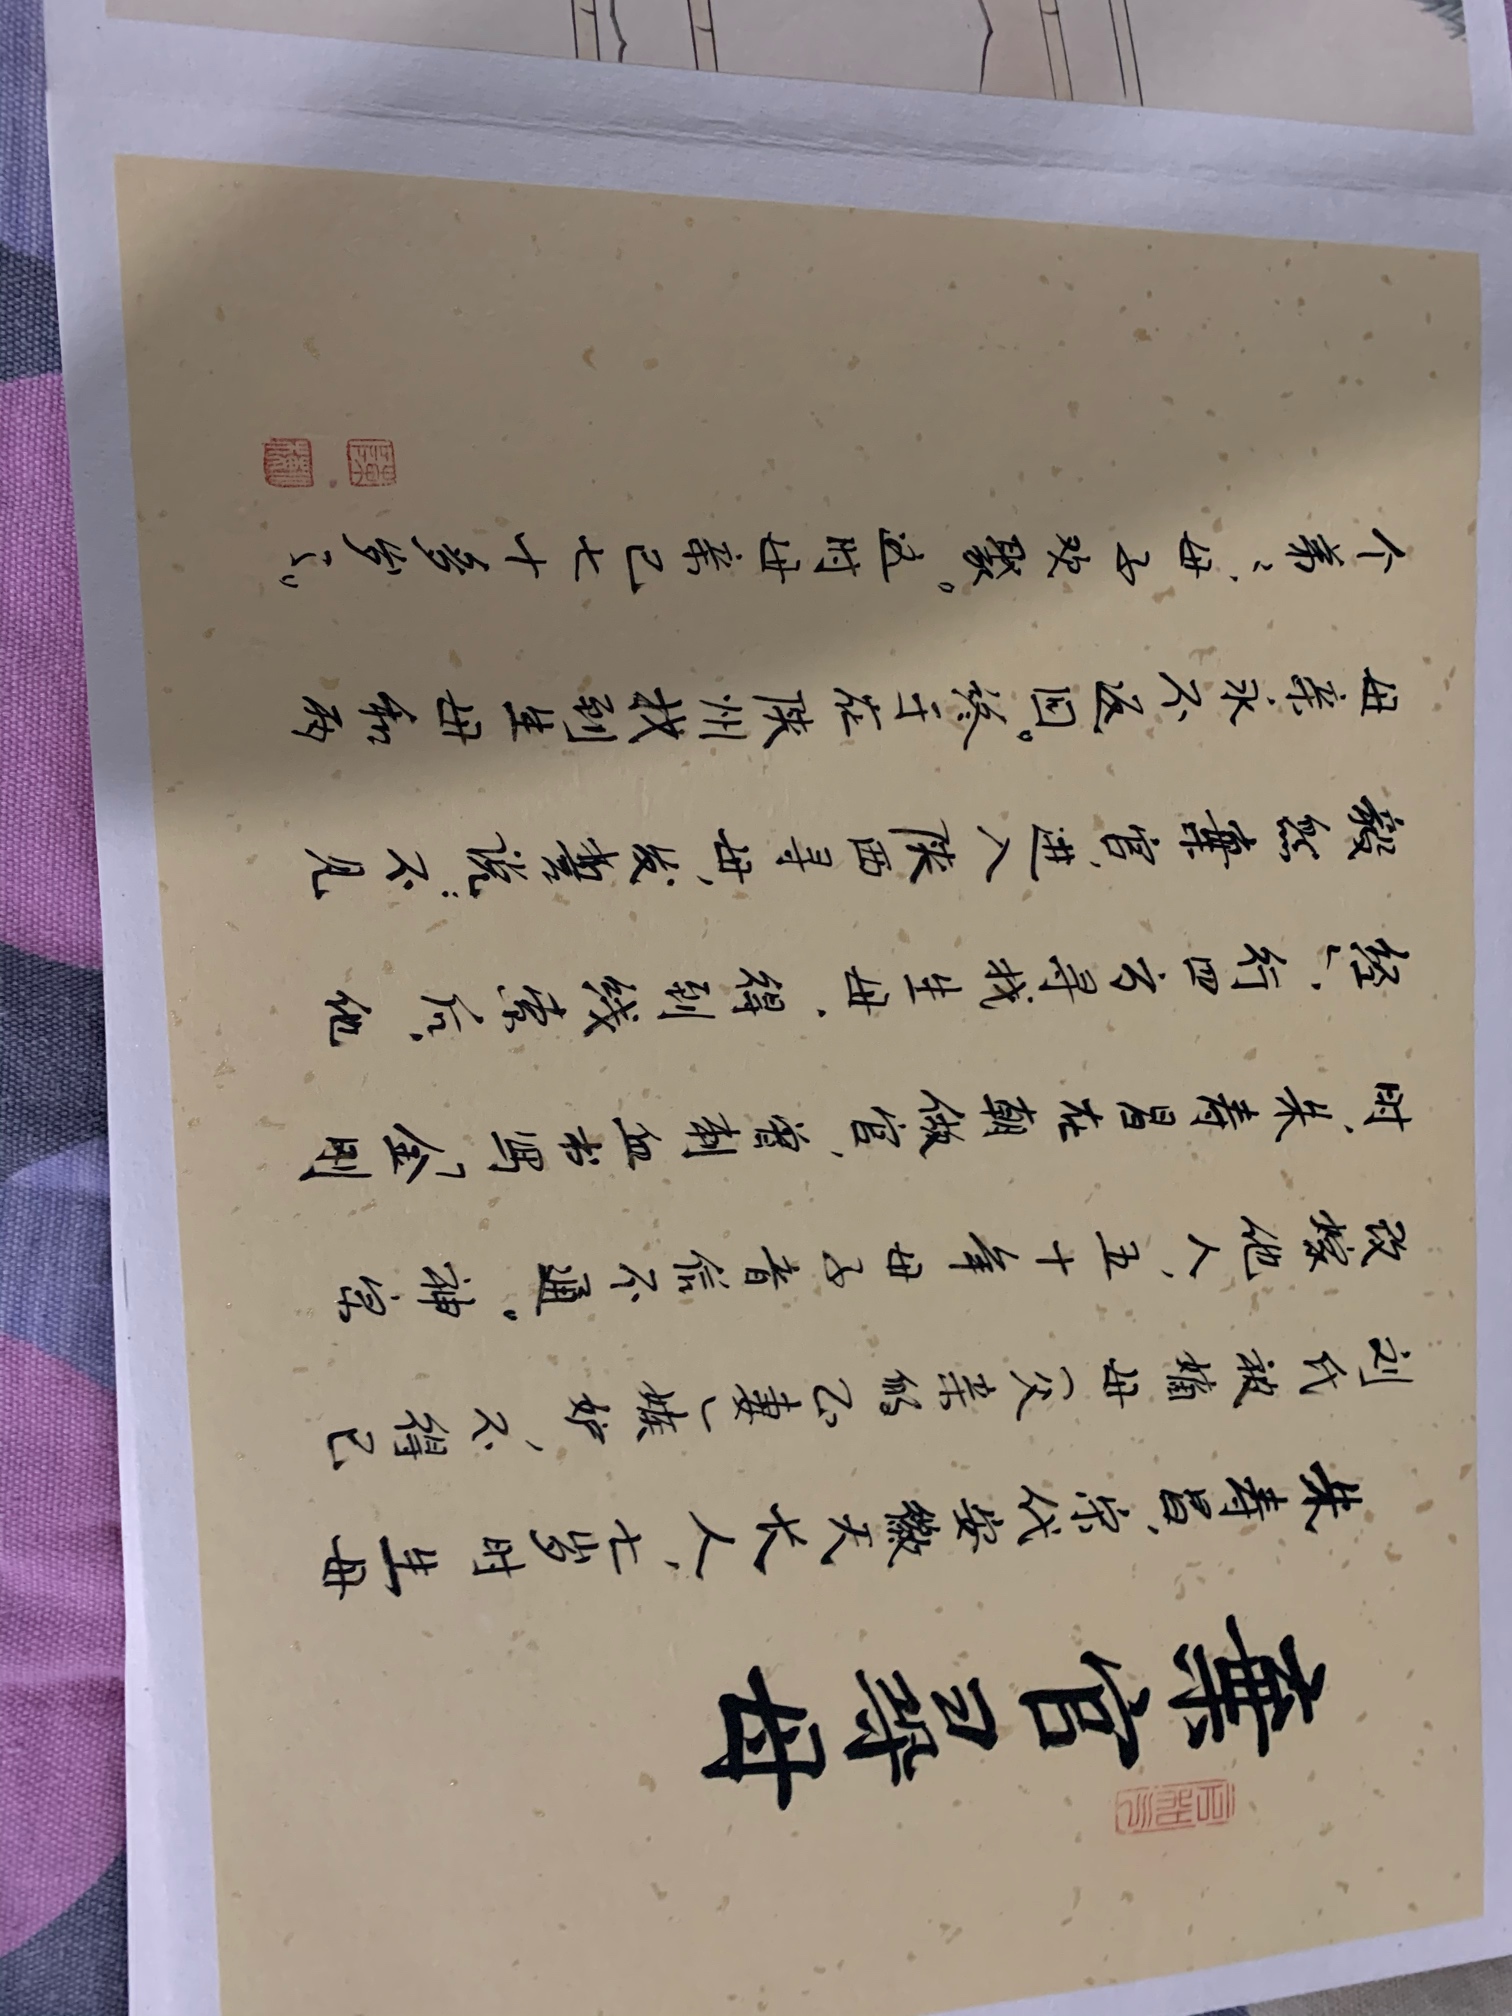 棄官寻母
朱寿昌、宋代安徽天长人、七岁时生母
刘氏被嫡母(父亲的正妻)嫉妒、不得已
改嫁他人、五十年母子音信不通。神宗
时、朱寿昌在朝做官、曾刺血书写《金刚
经》、行四方寻找生母、得到线索后、他
毅然棄官、进入陕西寻母、发誓说:不见
母亲永不返回。终于在陕州找到生母和两
个弟弟、母子欢聚。这时母亲已七十多岁了。